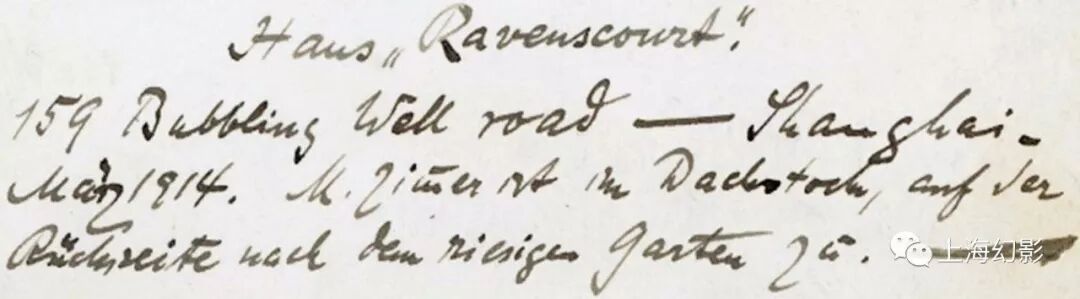 Haus „Ravenscourt".
159 Bubbling Well road — Shanghai –
März 1914. M. Zim̄er ist im Dachstock, auf der
Rückseite nach dem riesigen Garten zu.
上海幻影